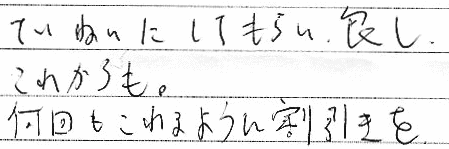 ていねいにしてもらい、良し、
これからも。
何回もこれるように割引きを